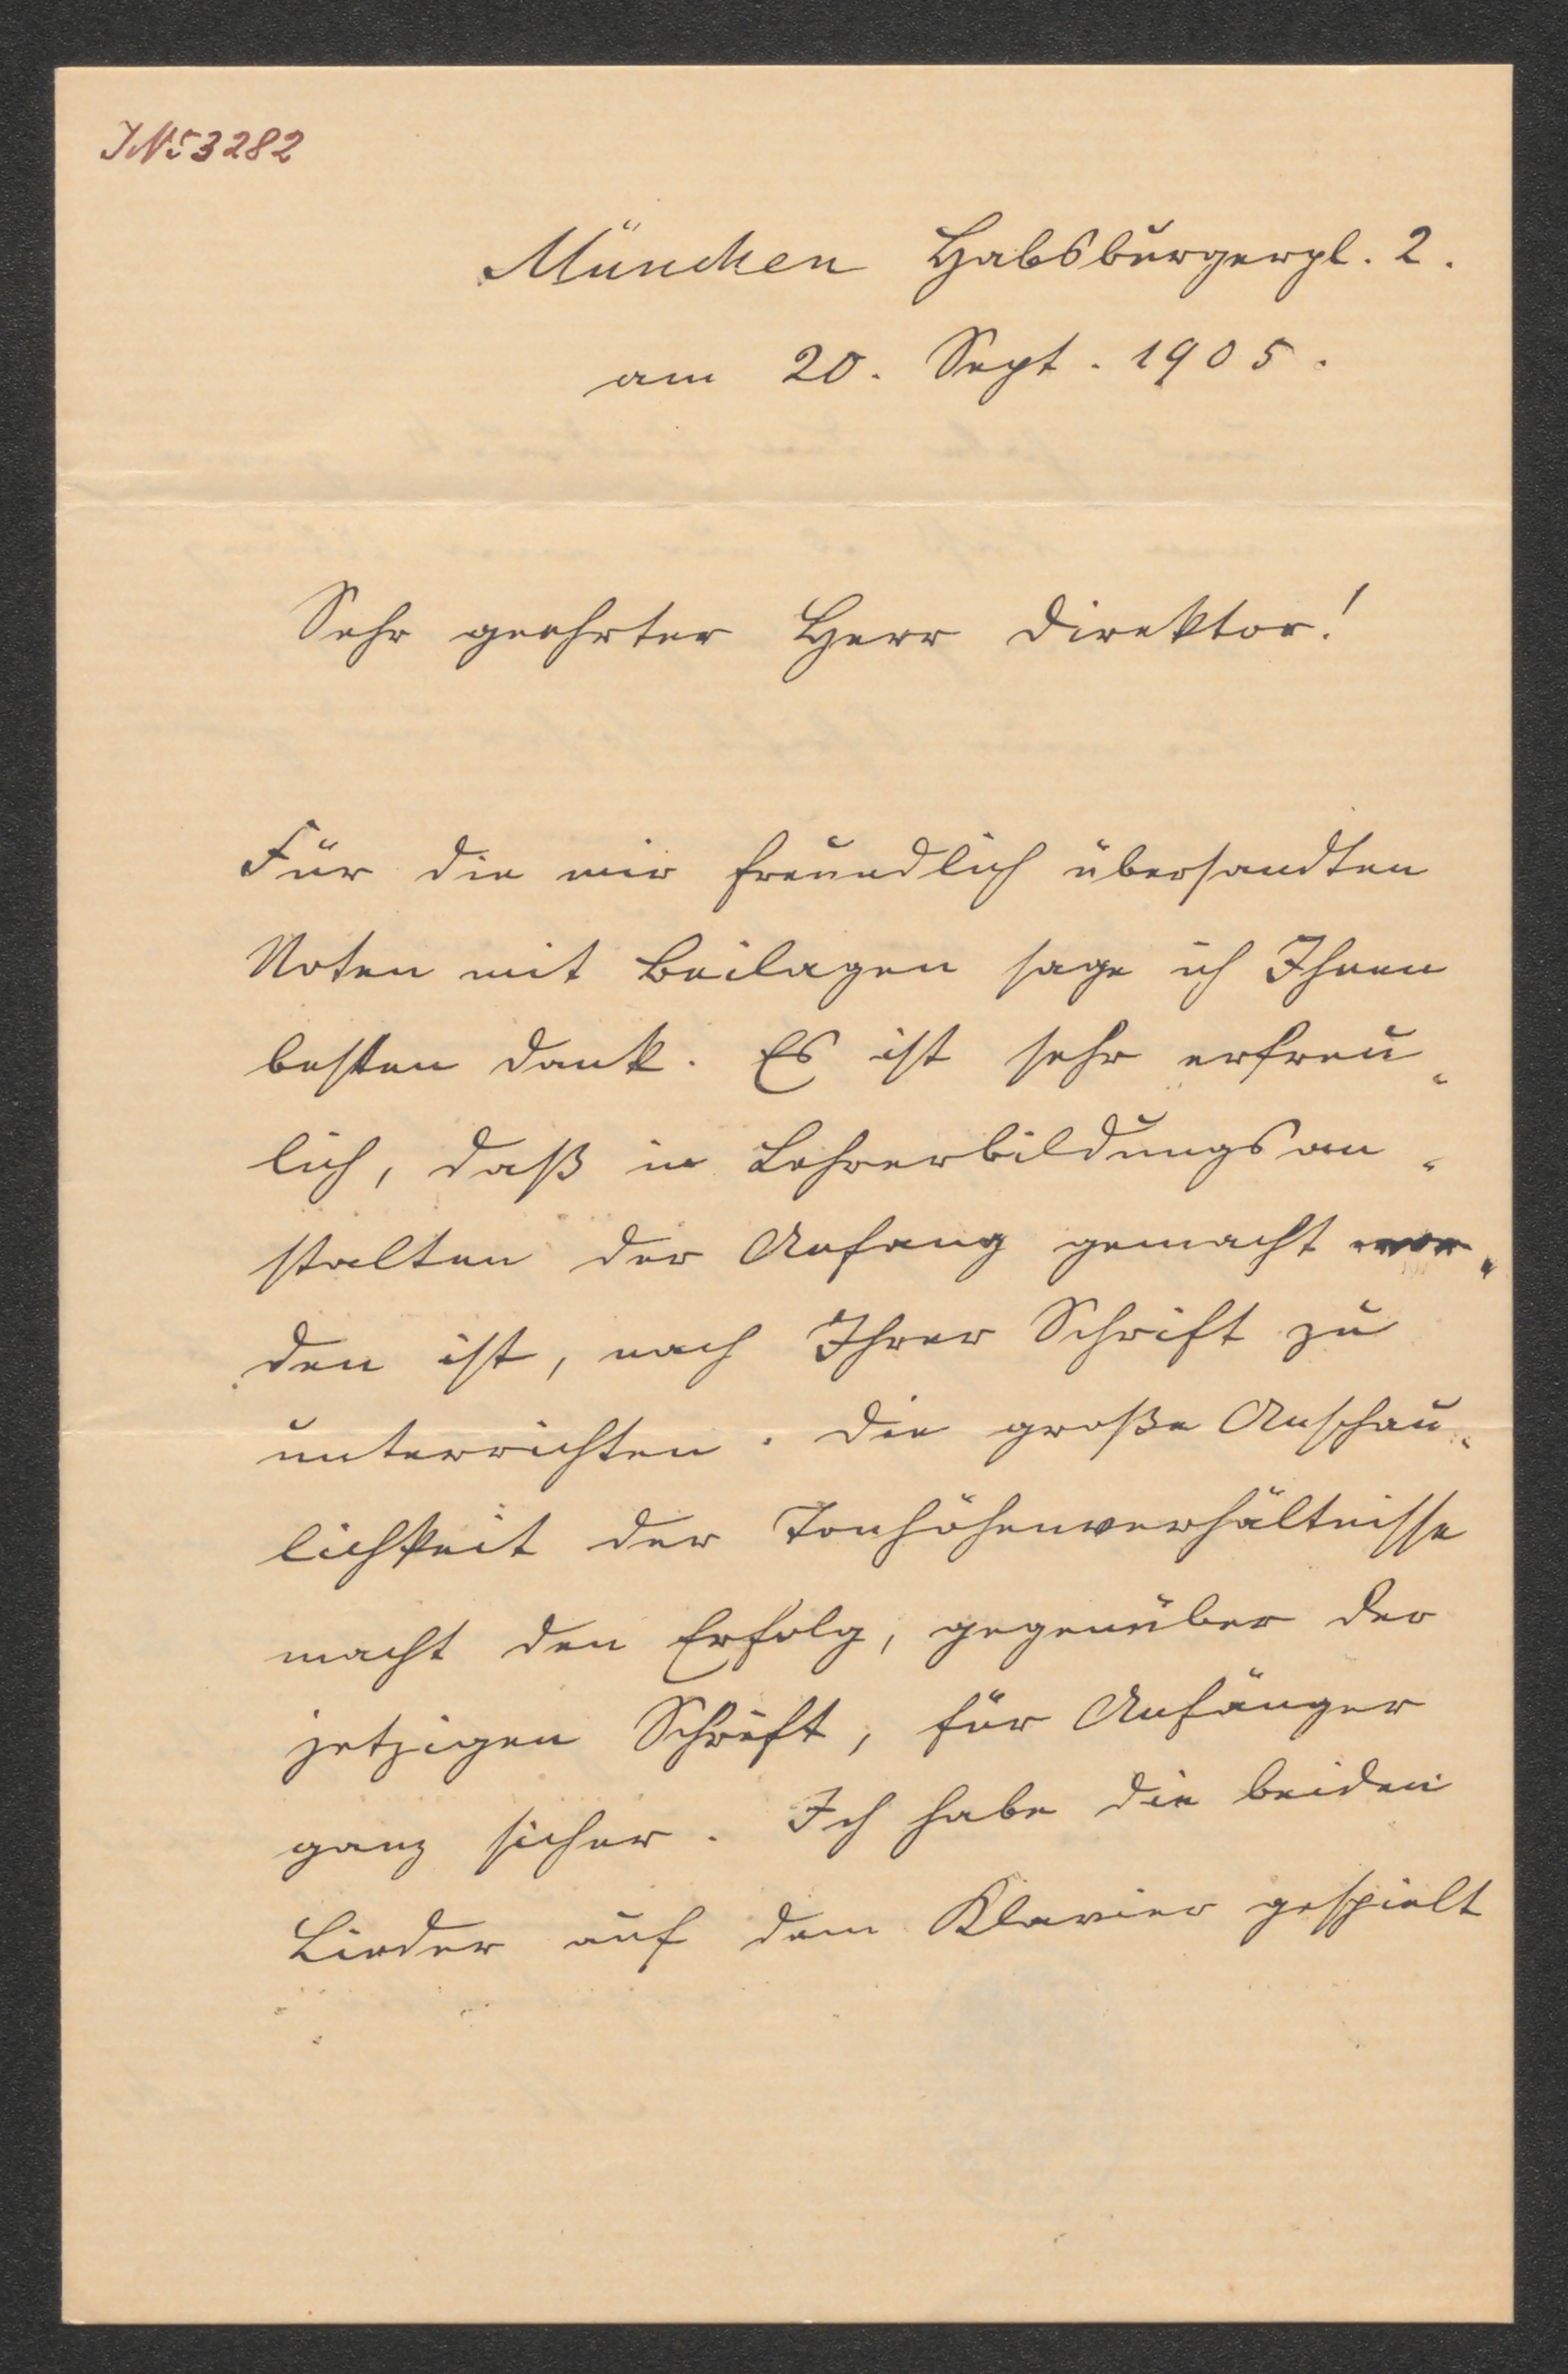 JN 53282
München Habsburgerpl. 2.
am 20. Sept. 1905.
Sehr geehrter Herr Direktor!
Für die mir freundlich übersandten
Noten mit Beilagen sage ich Ihnen
besten Dank. Es ist sehr erfreu-
lich, daß in Lehrerbildungsan-
stalten der Anfang gemacht wor-
den ist, nach Ihrer Schrift zu
unterrichten. Die große Anschau-
lichkeit der Tonhöhenverhältnisse
macht den Erfolg, gegenüber der
jetzigen Schrift, für Anfänger
ganz sicher. Ich habe die beiden
Lieder auf dem Klavier gespielt